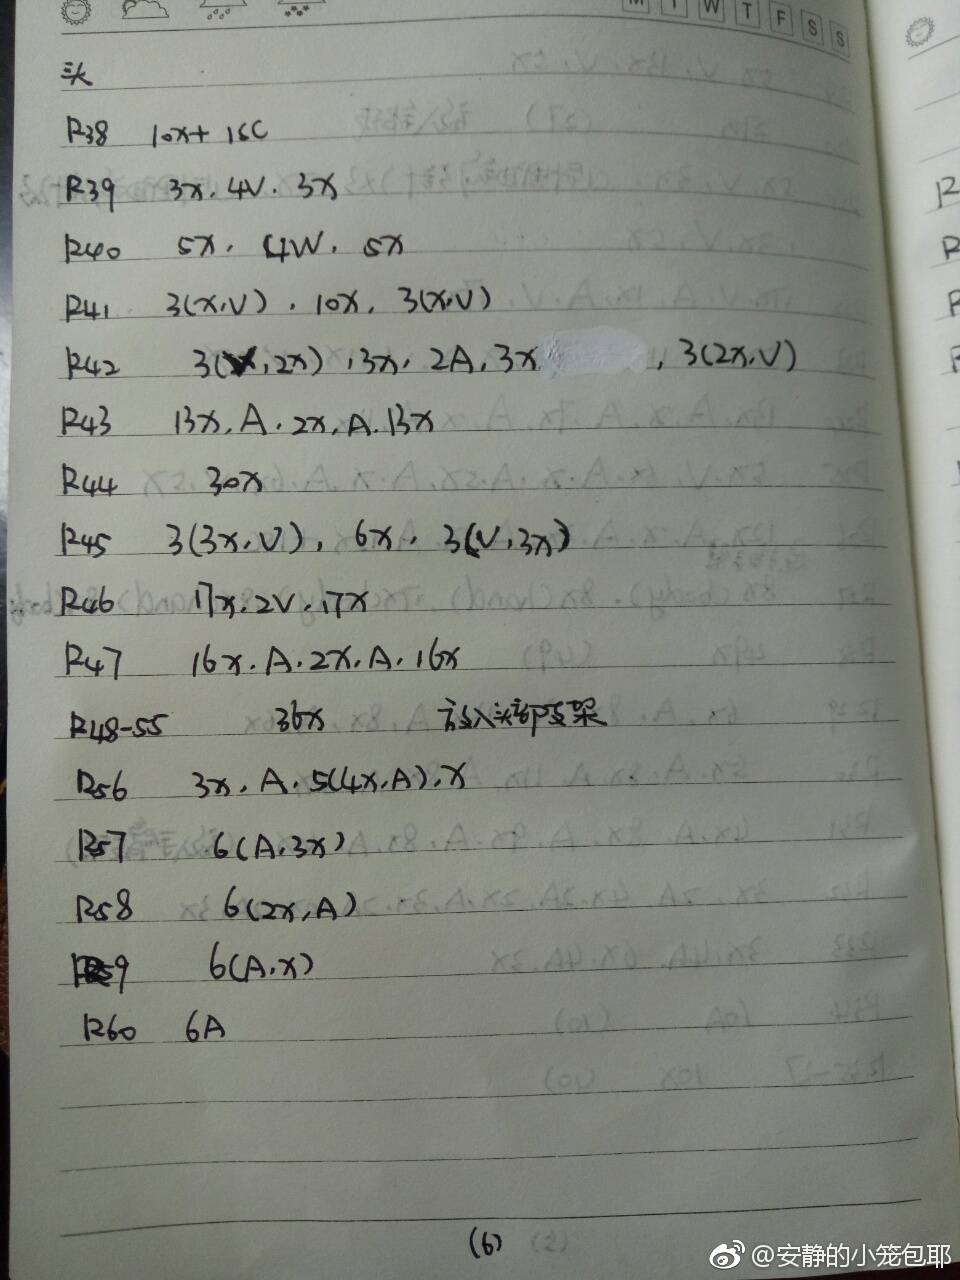 M T W T F S S
头
R38 10x+ 16C
R39 3x. 4V. 3x
R40 5x. 4W. 5x
R41 3(x.V). 10x. 3(x.V)
R42 3(V, 2x), 3x. 2A, 3x , 3(2x.V)
R43 13x. A. 2x, A. 13x
R44 30x
R45 3(3x.V), 6x. 3(V,3x)
R46 17x. 2V. 17x
R47 16x. A. 2x. A. 16x
R48-55 36x 放入头部支架
R56 3x. A. 5(4x.A). x
R57 6(A.3x)
R58 6(2x,A)
R59 6(A.x)
R60 6A
(6)
@安静的小笼包耶